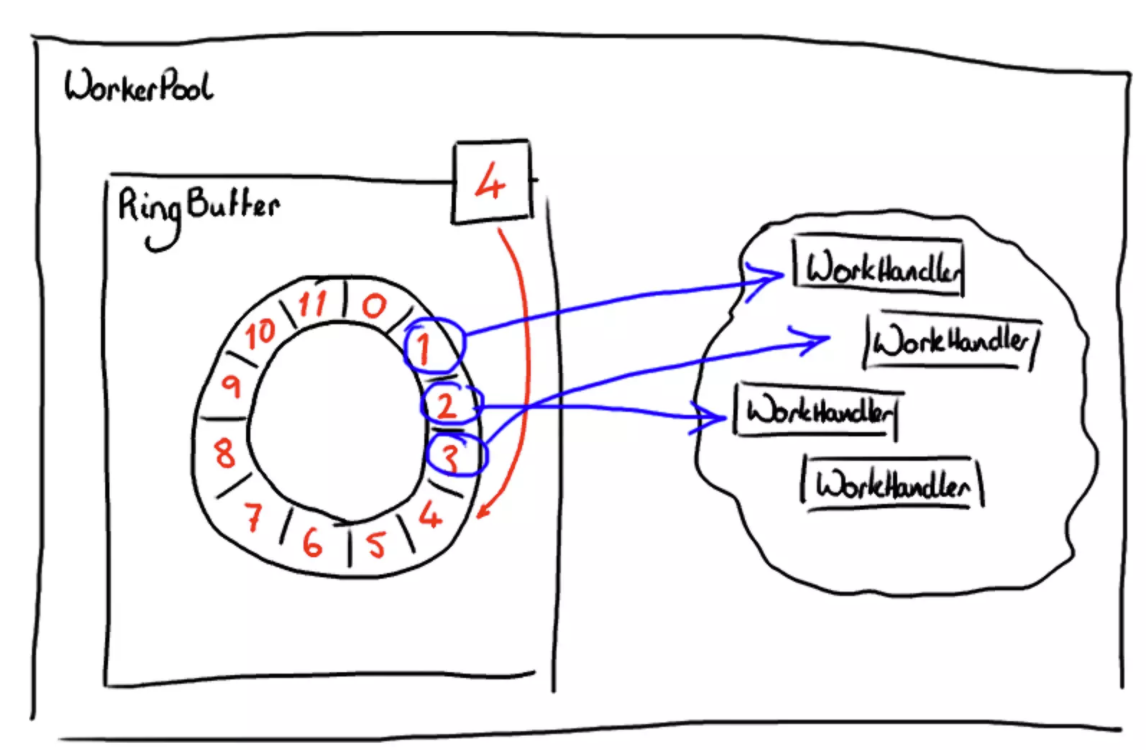 WorkerPool
4
RingBuffer
11
0
10
1
9
2
8
3
7
4
6
5
WorkHandler
WorkHandler
WorkHandler
WorkHandler